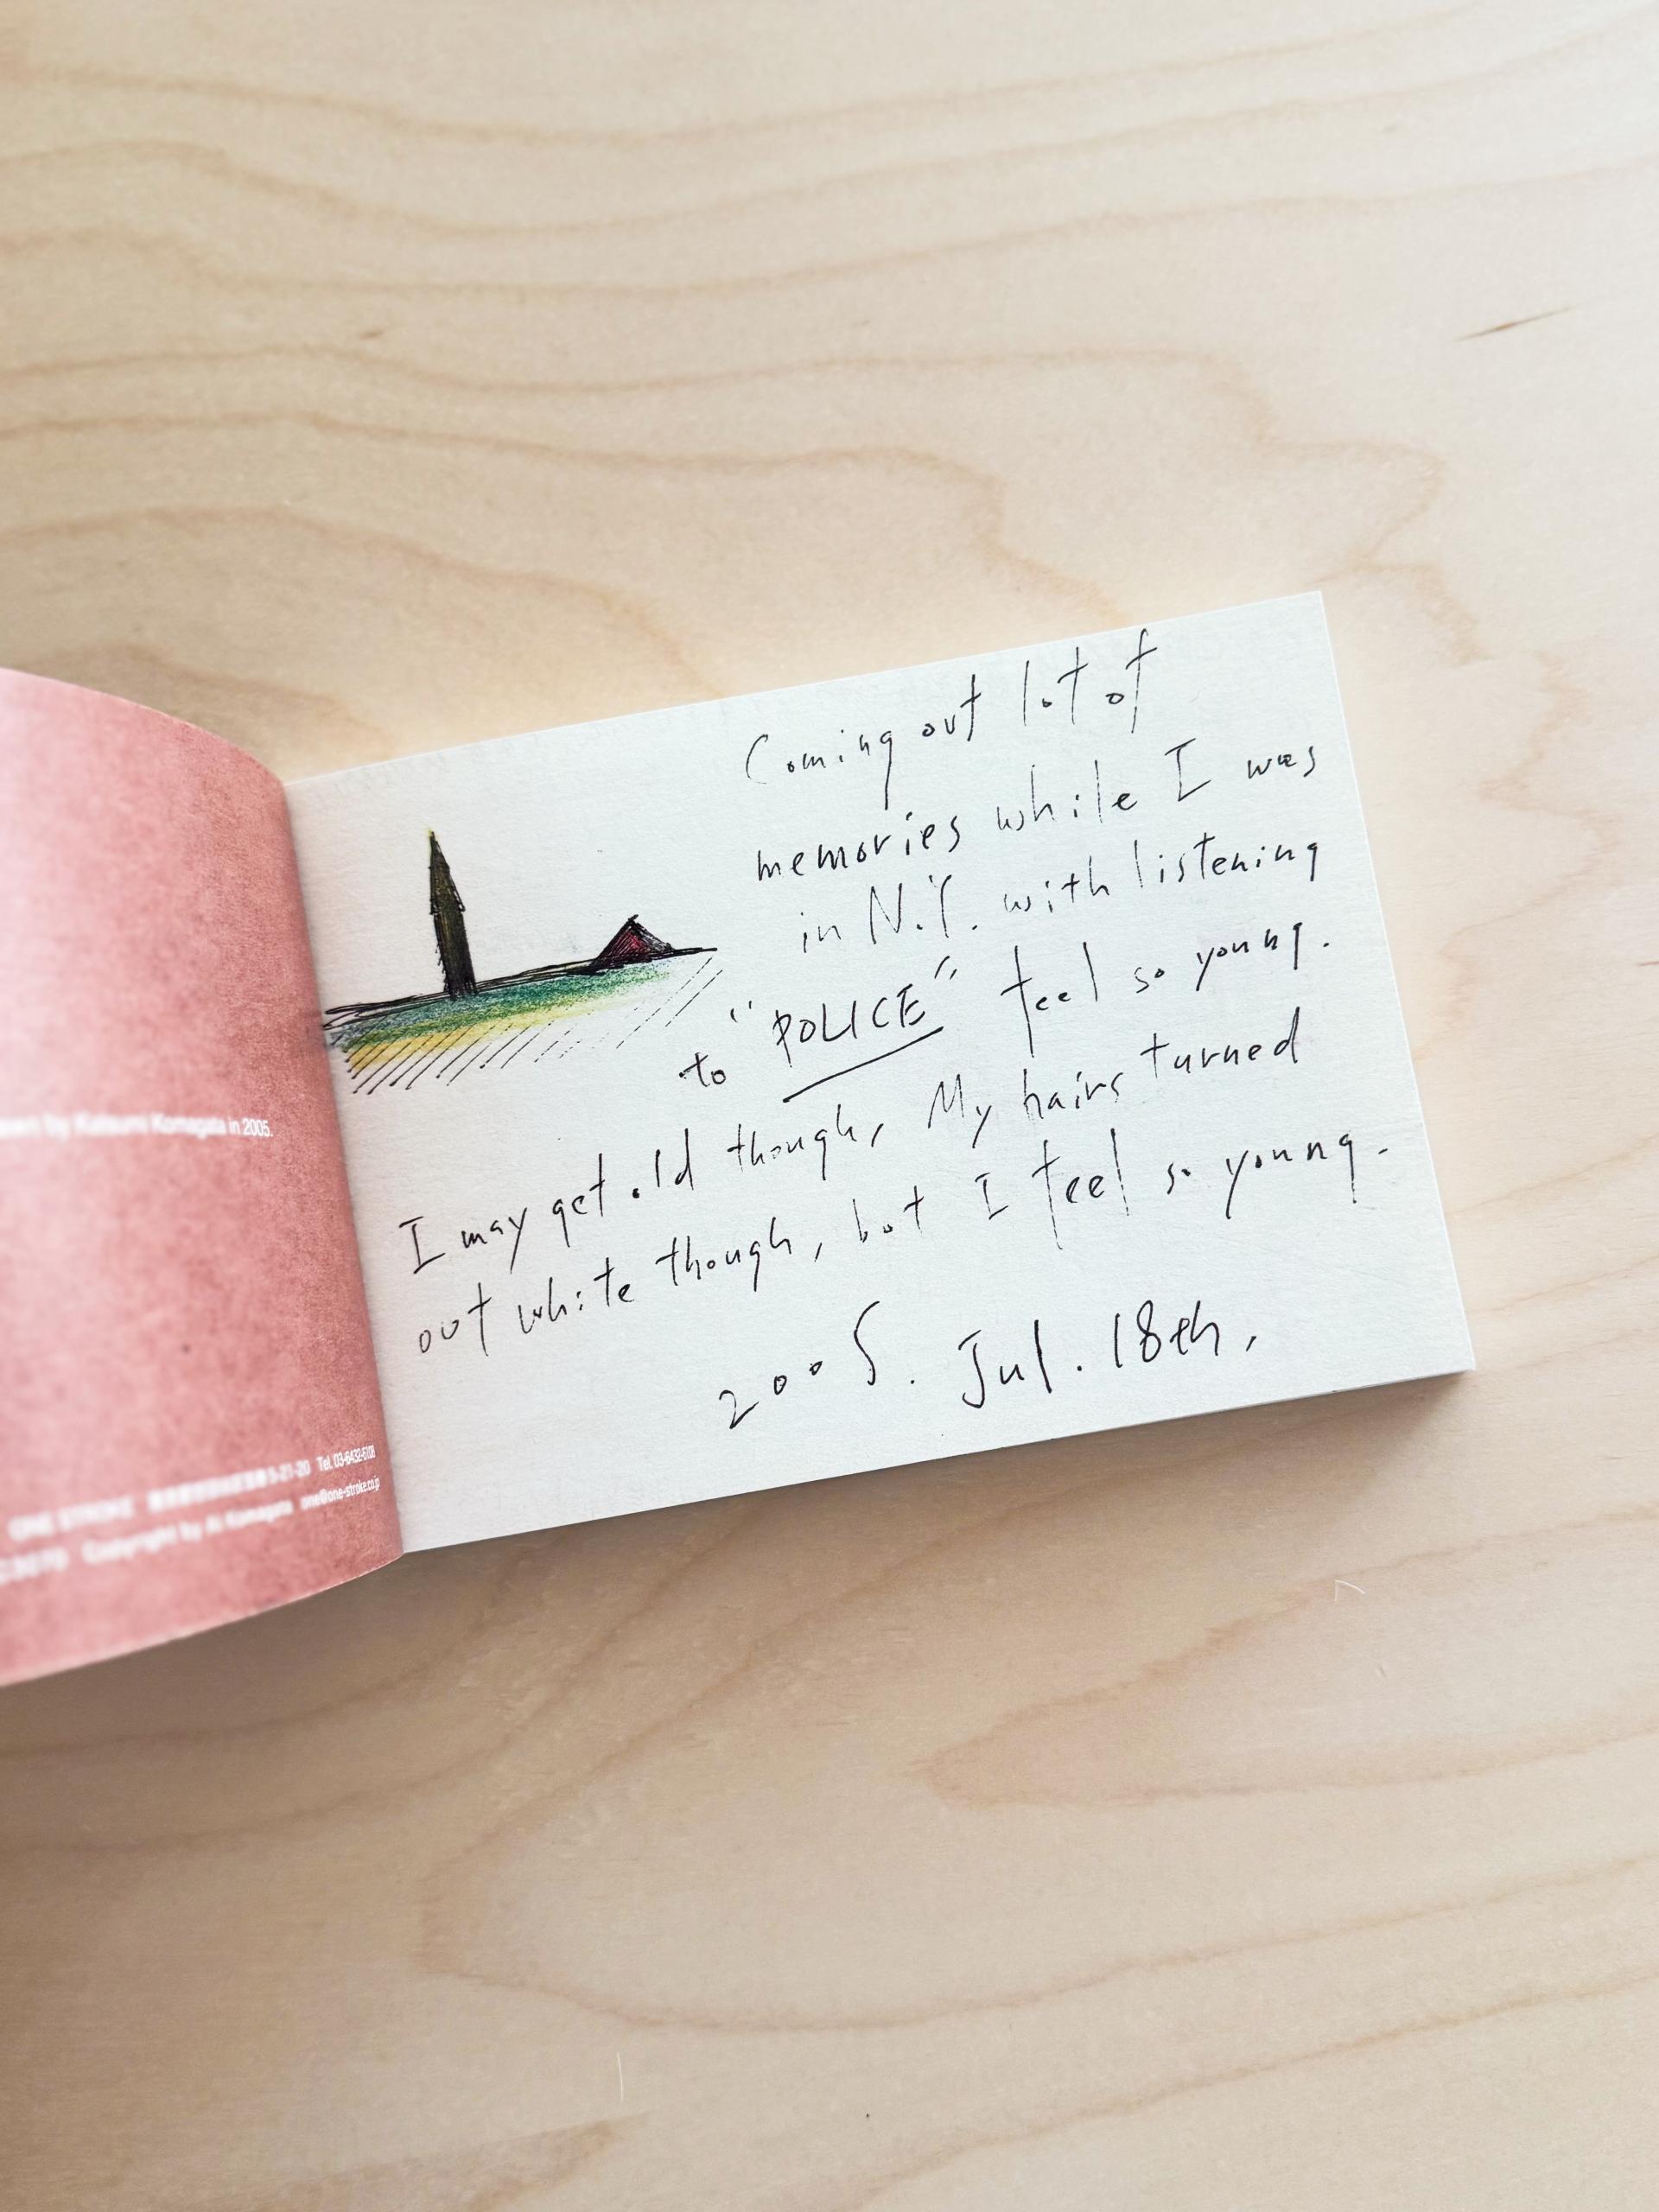 by Katsumi Komagata in 2005.
ONE STROKE 5-21-20 Tel. 03-6432-6108
Copyright by Ai Komagata one@one-stroke.co.jp
Coming out lot of
memories while I was
in N.Y. with listening
to "POLICE" feel so young.
I may get old though, My hairs turned
out white though, but I feel so young.
2005. Jul. 18th.